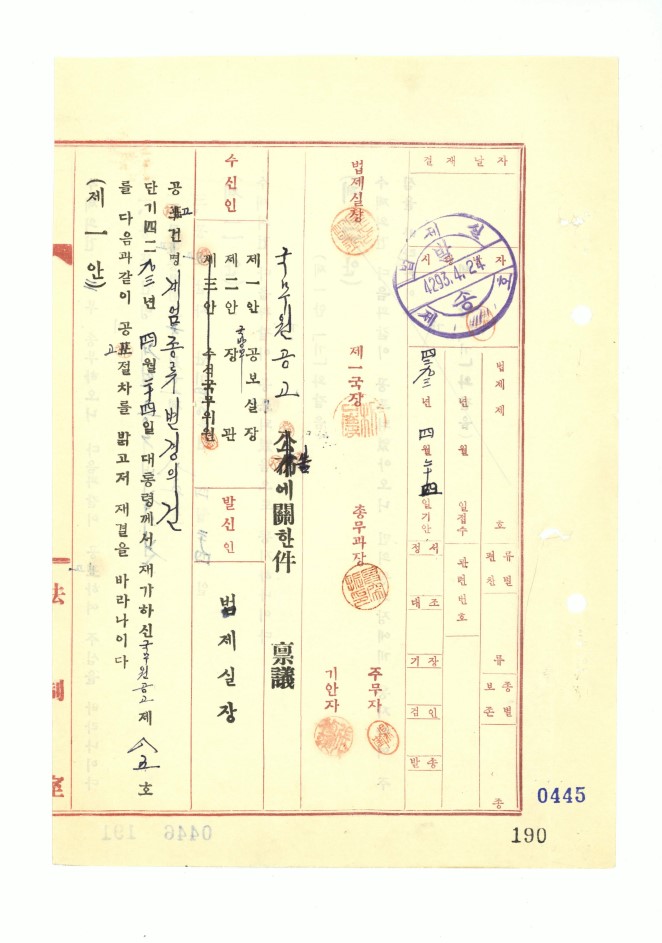 결재날자
법제실
시행발자
발송
4293.4.24
법제제 호
四二九三년 월 일접수
四二九三년 四월 二十四일기안
관련번호
류별
편찬
류
종별
보존
종
정서
대조
기장
검인
발송
법제실장
제一국장
총무과장
주무자
기안자
국무원공고 公布에關한件 禀議
수신인
제一안 공보실장
제二안 국방부장관
제三안 수석국무위원
발신인
법제실장
공고건명 계엄종류변경의건
단기四二九三년 四월二十四일 대통령께서 재가하신 국무원공고 제八五호
를 다음과같이 공고절차를 밝고저 재결을 바라나이다
(제一안)
法制室
0445
190
0446 191